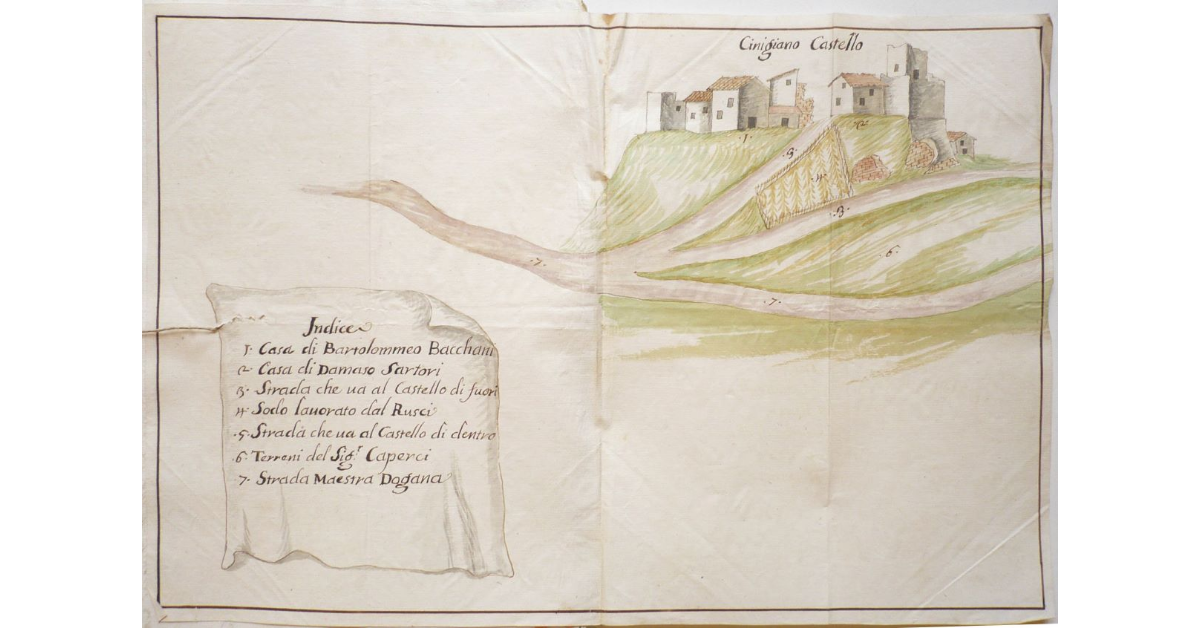 Cinigiano Castello
.1.
.2.
.5.
.4.
.3.
.6.
.7.
.7.
Indice
1. Casa di Bartolommeo Bacchani
2. Casa di Damaso Sartori
3. Strada che ua al Castello di fuori
4. Sodo lauorato dal Rusci
.5. Strada che ua al Castello di dentro
.6. Terreni del Sig.r Caperci
.7. Strada Maestra Dogana